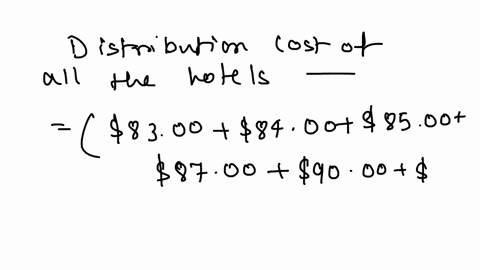 Distribution cost of
all the hotels —
= ( $83.00 + $84.00 + $85.00 +
$87.00 + $90.00 + $